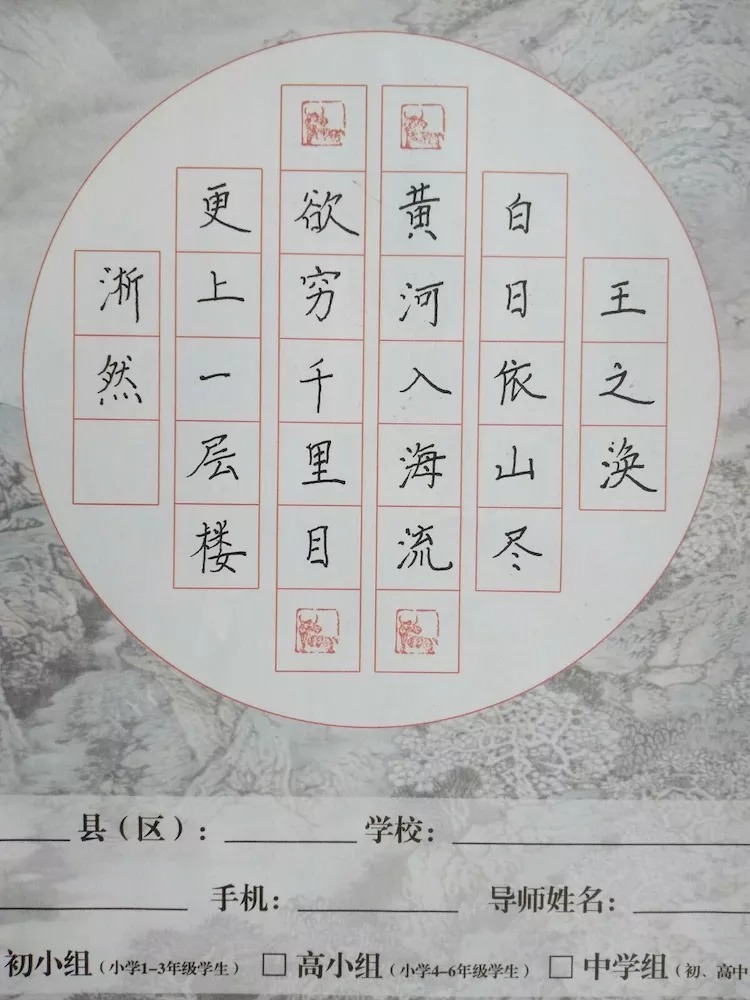 王之涣
白日依山尽
黄河入海流
欲穷千里目
更上一层楼
淅然
县（区）：
学校：
手机：
导师姓名：
初小组（小学1-3年级学生） □ 高小组（小学4-6年级学生） □ 中学组（初、高中